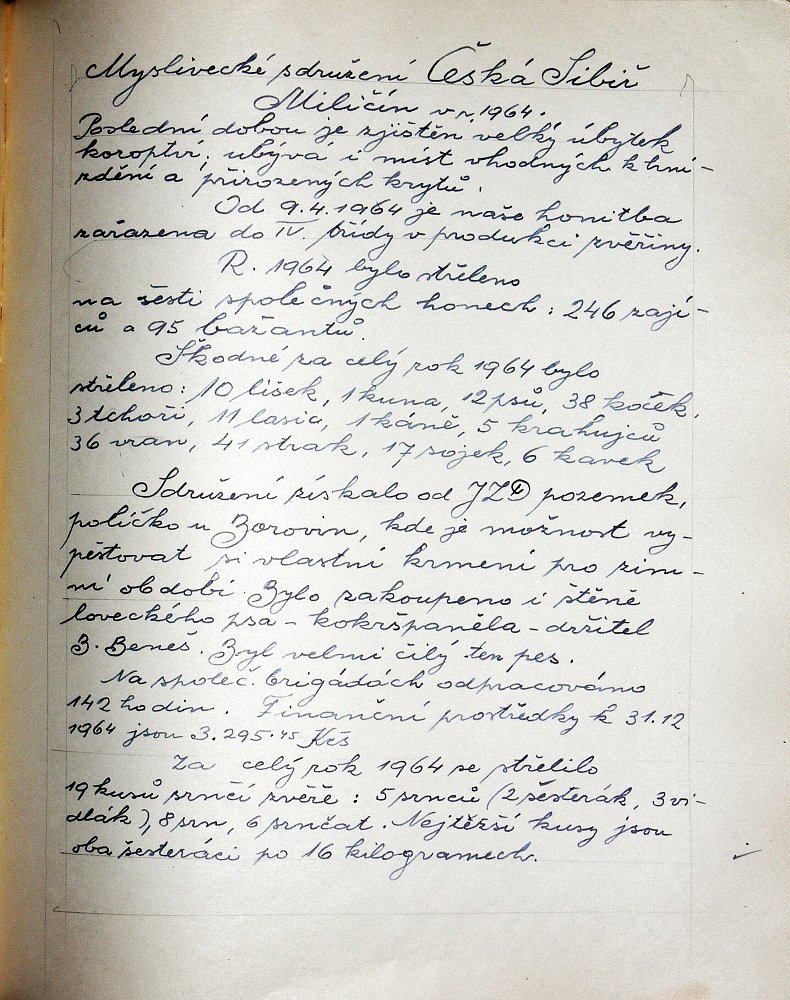 Myslivecké sdružení Česká Sibiř
Miličín v r. 1964.
Poslední dobou je zjištěn velký úbytek
koroptví, ubývá i míst vhodných k hní-
zdění a přirozených krytů.
Od 9.4.1964 je naše honitba
zařazena do IV. třídy v produkci zvěřiny.
R. 1964 bylo střeleno
na šesti společných honech : 246 zají-
ců a 95 bažantů.
Škodné za celý rok 1964 bylo
střeleno: 10 lišek, 1 kuna, 12 psů, 38 koček,
3 tchoři, 11 lasic, 1 káně, 5 krahujců
36 vran, 41 strak, 17 sojek, 6 kavek
Sdružení získalo od JZD pozemek,
políčko u Borovin, kde je možnost vy-
pěstovat si vlastní krmení pro zim-
ní období. Bylo zakoupeno i štěně
loveckého psa - kokršpaněla - držitel
B. Beneš. Byl velmi čilý ten pes.
Na společ. brigádách odpracováno
142 hodin. Finanční prostředky k 31.12
1964 jsou 3.295.45 Kčs
Za celý rok 1964 se střelilo
19 kusů srnčí zvěře : 5 srnců (2 šesterák, 3 vi-
dlák), 8 srn, 6 srnčat. Nejtěžší kusy jsou
oba šesteráci po 16 kilogramech.